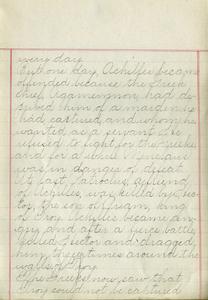 every day.
But one day Achilles became
offended because the Greek
chief Agamemnon had de
prived him of a maiden he
had captured and whom he
wanted as a servant. He
refused to fight for the Greeks
and for a while Menelaus
was in danger of defeat.
At last, Patroclus, a friend
of Achilles, was killed by Hec
tor, the son of Priam, king
of Troy. Achilles became an
gry and after a fierce battle
killed Hector and dragged
him three times around the
walls of Troy.
The Greeks now saw that
Troy could not be captured